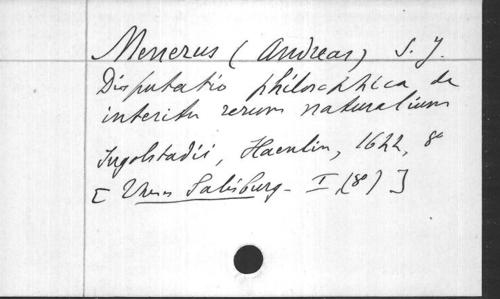 Menerus (Andreas) S. J.
Disputatio philosophica de
interitu rerum naturalium
Ingolstadii, Haenlin, 1622, 8
[ Salisburg. I (8) ]